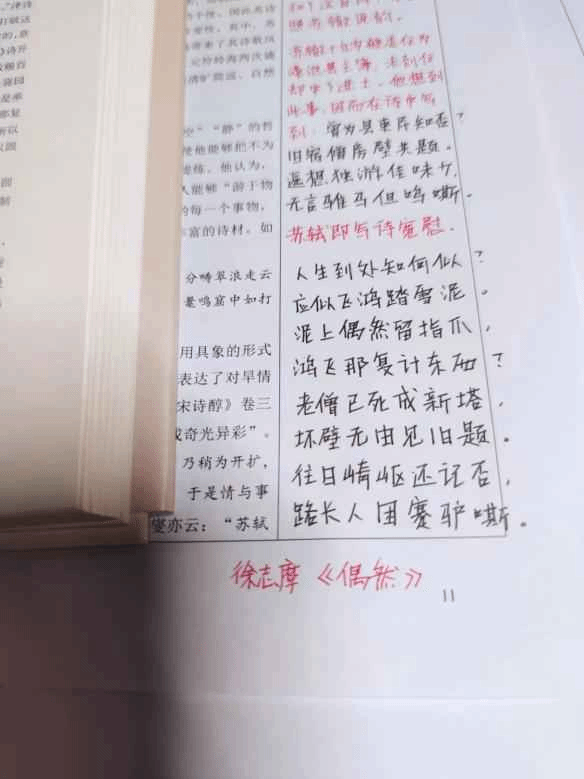 打破这
》诗开
故园
所以
以圆
圆
制
时的每一个事物，
富的诗材。如
空”“静”的哲
使他能够把不为
提炼。他认为，
人能够“游于物
分畴翠浪走云
是鸣窟中如打
用具象的形式
表达了对旱情
宋诗醇》卷三
成奇光异彩”。
乃稍为开扩，
于是情与事
燮亦云：“苏轼
苏辙十九岁被选任为
渑池县主簿，未到任
却中了进士。他想到
此事，因而在诗中写
到：曾为县吏民知否？
旧宿僧房壁共题。
遥想独游佳味少，
无言骓马但鸣嘶。
苏轼即写诗宽慰。
人生到处知何似？
应似飞鸿踏雪泥。
泥上偶然留指爪，
鸿飞那复计东西？
老僧已死成新塔，
坏壁无由见旧题。
往日崎岖还记否，
路长人困蹇驴嘶。
徐志摩《偶然》
11